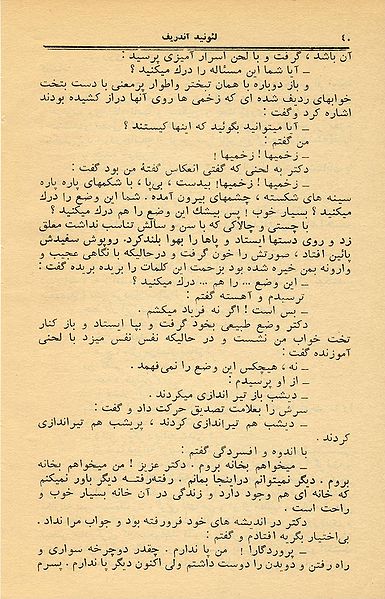 ۴۰
لئونید آندریف
آن باشد ، گرفت و با لحن اسرار آمیزی پرسید :
ـ آیا شما این مسئاله را درك میكنید ؟
و باز دوباره با همان تبختر واطوار پرمعنی با دست بتخت
خوابهای ردیف شده ای که زخمی ها روی آنها دراز کشیده بودند
اشاره کرد وگفت :
ـ آیا میتوانید بگوئید که اینها کیستند ؟
من گفتم :
ـ زخمیها ! زخمیها !
دکتر به لحنی که گفتی انعکاس گفتهٔ من بود گفت :
ـ زخمیها ! زخمیها! بیدست ، بی‌پا ، با شکمهای پاره پاره
سینه های شکسته ، چشمهای بیرون آمده . شما این وضع را درك
میکنید ؟ بسیار خوب ! پس بیشك این وضع را هم درك میکنید ؟
با چستی و چالاکی که با سن و سالش تناسب نداشت معلق
زد و روی دستها ایستاد و پاها را بهوا بلندکرد. روپوش سفیدش
پائین افتاد ، صورتش را خون گرفت و درحالیکه با نگاهی عجیب و
وارونه بمن خیره شده بود بزحمت این کلمات را بریده بریده گفت :
ـ این وضع ... را هم ... درك میکنید ؟
ترسیدم و آهسته گفتم :
ـ بس است ! اگر نه فریاد میکشم .
دکتر وضع طبیعی بخود گرفت و بپا ایستاد و باز کنار
تخت خواب من نشست و در حالیکه نفس نفس میزد با لحنی
آموزنده گفت :
ـ نه ، هیچکس این وضع را نمی‌فهمد .
ـ از او پرسیدم :
ـ دیشب باز تیر اندازی میکردند .
سرش را بعلامت تصدیق حرکت داد و گفت :
ـ دیشب هم تیراندازی کردند ، پریشب هم تیراندازی
کردند .
با اندوه و افسردگی گفتم :
ـ میخواهم بخانه بروم . دکتر عزیز ! من میخواهم بخانه
بروم . دیگر نمیتوانم دراینجا بمانم . رفته‌رفته دیگر باور نمیکنم
که خانه ای هم وجود دارد و زندگی در آن خانه بسیار خوب و
راحت است .
دکتر در اندیشه های خود فرورفته بود و جواب مرا نداد .
بی‌اختیار بگریه افتادم و گفتم :
ـ پروردگارا ! من پا ندارم . چقدر دوچرخه سواری و
راه رفتن و دویدن را دوست داشتم ولی اکنون دیگر پا ندارم . پسرم